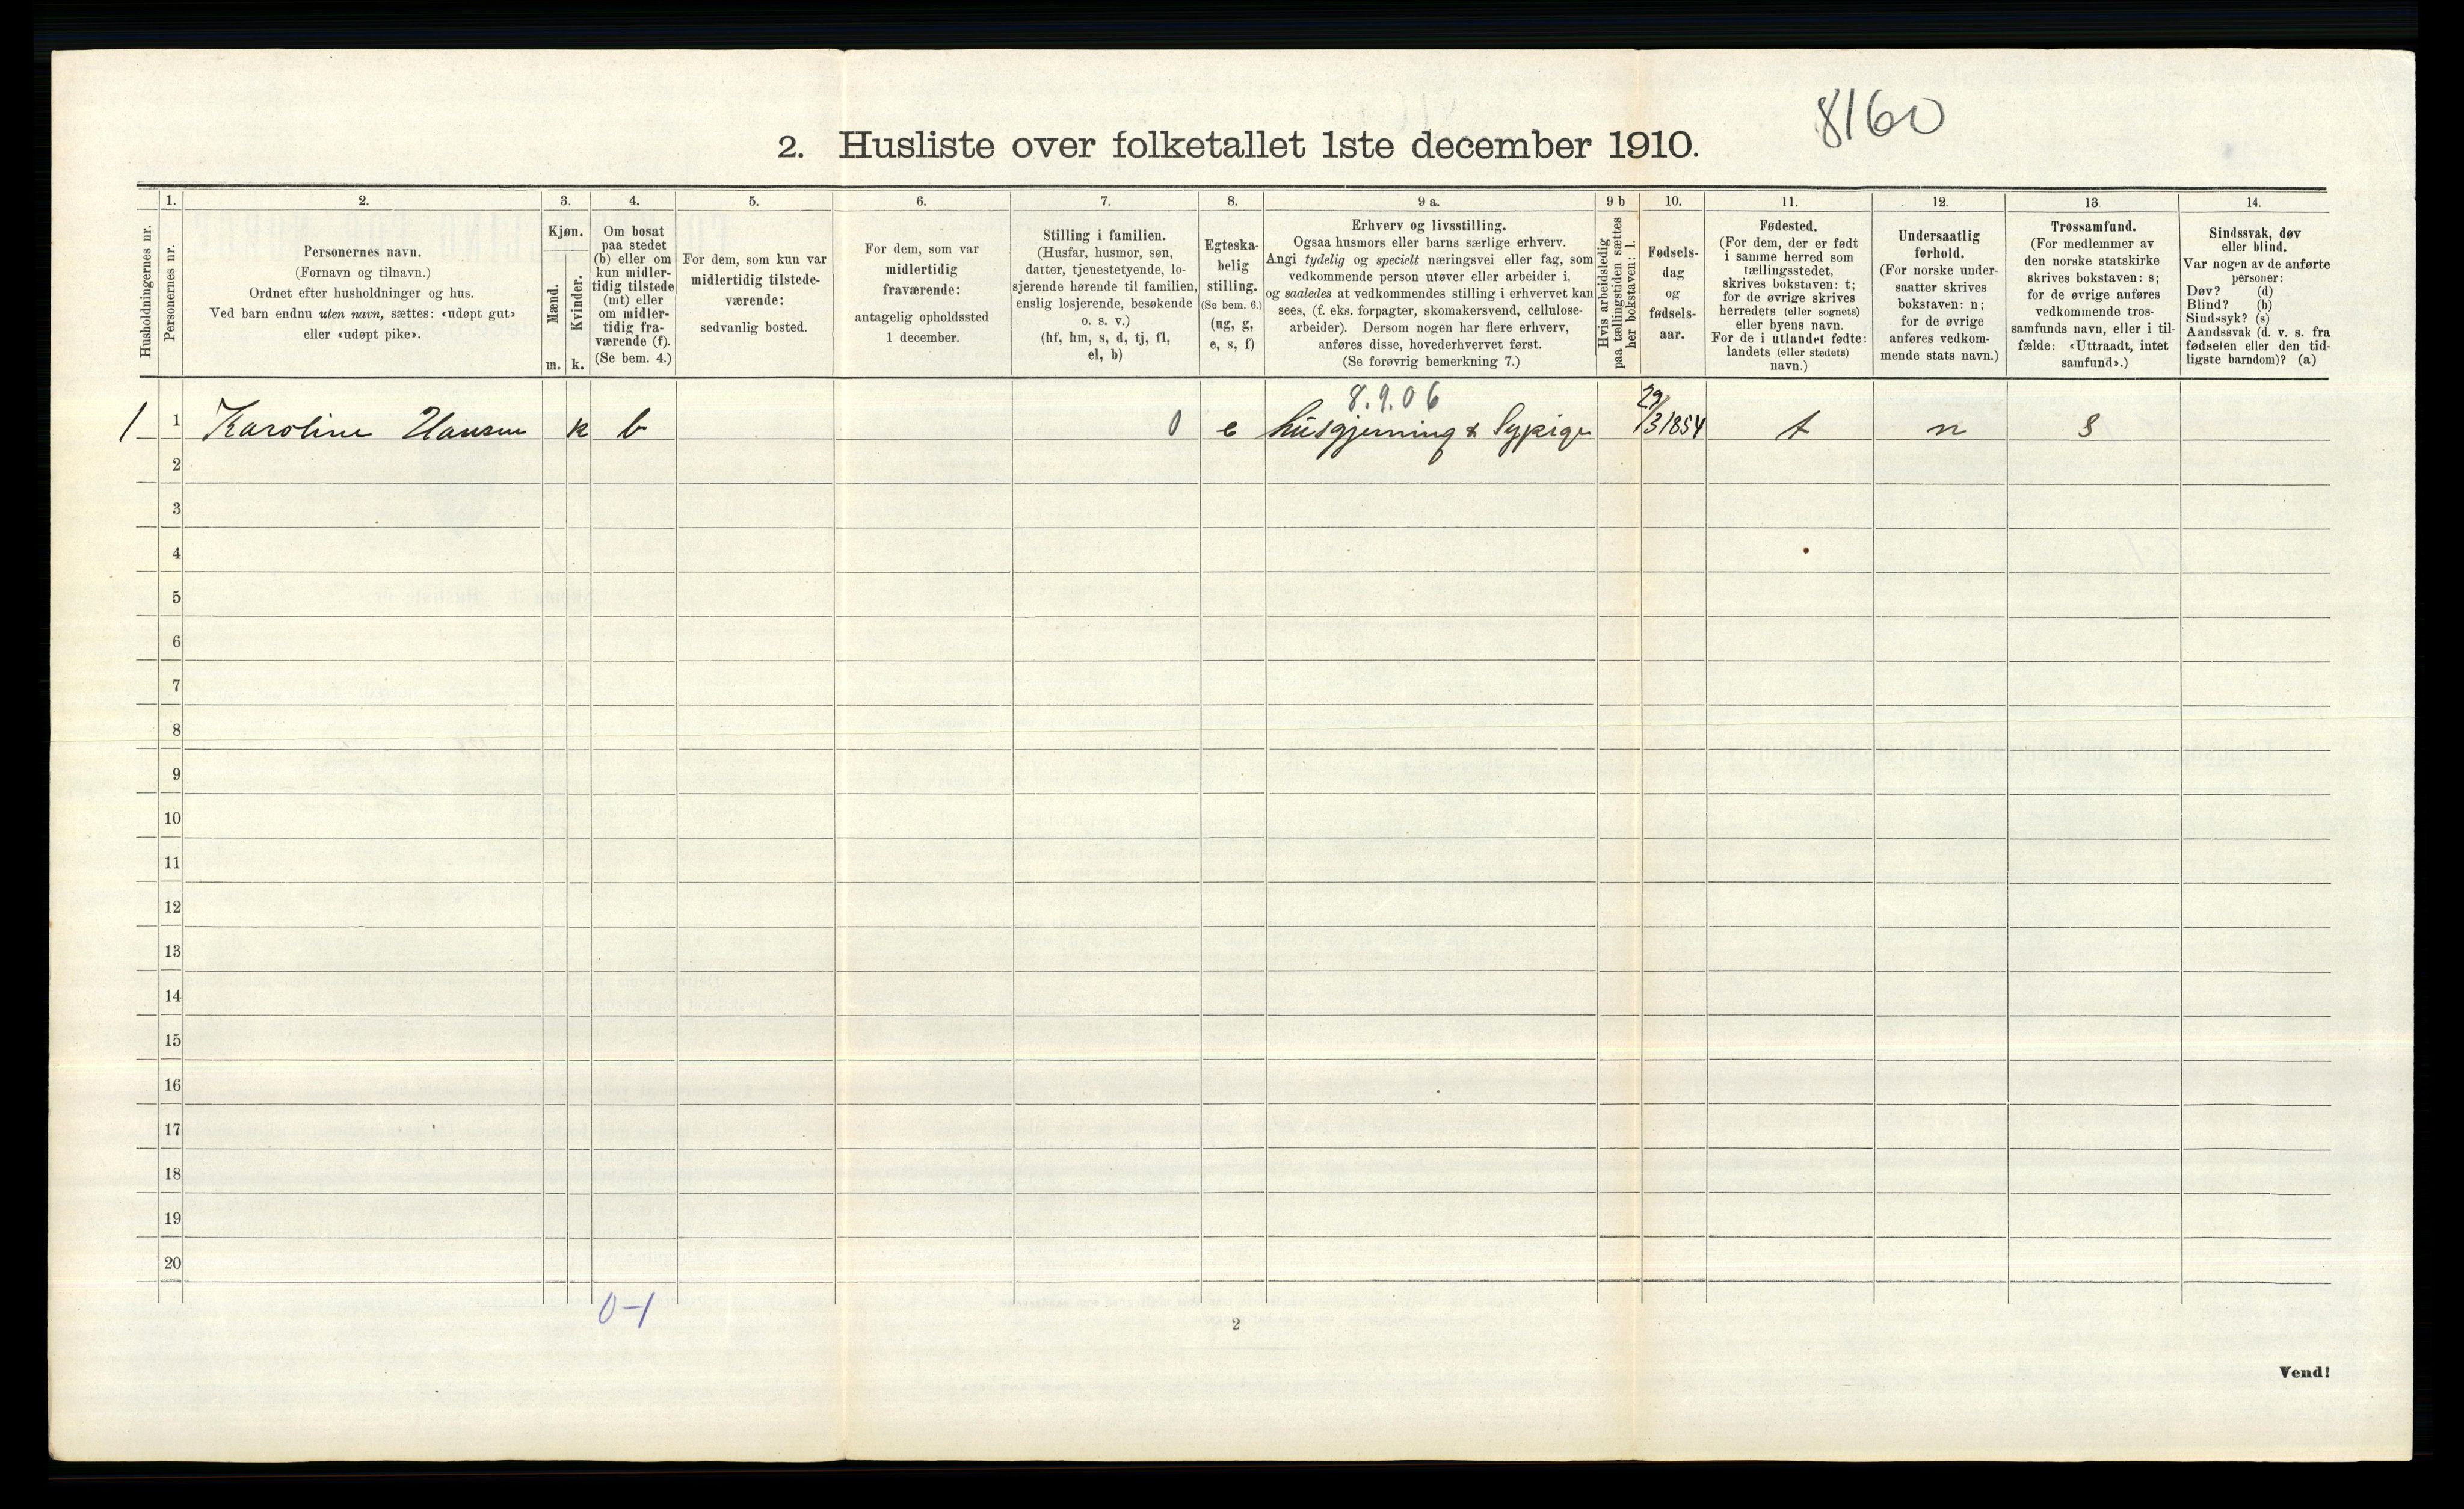 8160
2. Husliste over folketallet 1ste december 1910.
Husholdningernes nr.
1.
Personernes nr.
2.
Personernes navn.
(Fornavn og tilnavn.)
Ordnet efter husholdninger og hus.
Ved barn endnu uten navn, sættes: «udøpt gut»
eller «udøpt pike».
3.
Kjøn.
Mænd.
m.
Kvinder.
k.
4.
Om bosat
paa stedet
(b) eller om
kun midler-
tidig tilstede
(mt) eller
om midler-
tidig fra-
værende (f).
(Se bem. 4.)
5.
For dem, som kun var
midlertidig tilstede-
værende:
sedvanlig bosted.
6.
For dem, som var
midlertidig
fraværende:
antagelig opholdssted
1 december.
7.
Stilling i familien.
(Husfar, husmor, søn,
datter, tjenestetyende, lo-
sjerende hørende til familien,
enslig losjerende, besøkende
o. s. v.)
(hf, hm, s, d, tj, fl,
el, b)
8.
Egteska-
belig
stilling.
(Se bem. 6.)
(ug, g,
e, s, f)
9 a.
Erhverv og livsstilling.
Ogsaa husmors eller barns særlige erhverv.
Angi tydelig og specielt næringsvei eller fag, som
vedkommende person utøver eller arbeider i,
og saaledes at vedkommendes stilling i erhvervet kan
sees, (f. eks. forpagter, skomakersvend, cellulose-
arbeider). Dersom nogen har flere erhverv,
anføres disse, hovederhvervet først.
(Se forøvrig bemerkning 7.)
9 b
Hvis arbeidsledig
paa tællingstiden sættes
her bokstaven: l.
10.
Fødsels-
dag
og
fødsels-
aar.
11.
Fødested.
(For dem, der er født
i samme herred som
tællingsstedet,
skrives bokstaven: t;
for de øvrige skrives
herredets (eller sognets)
eller byens navn.
For de i utlandet fødte:
landets (eller stedets)
navn.)
12.
Undersaatlig
forhold.
(For norske under-
saatter skrives
bokstaven: n;
for de øvrige
anføres vedkom-
mende stats navn.)
13
Trossamfund.
(For medlemmer av
den norske statskirke
skrives bokstaven: s;
for de øvrige anføres
vedkommende tros-
samfunds navn, eller i til-
fælde: «Uttraadt, intet
samfund».)
14.
Sindssvak, døv
eller blind.
Var nogen av de anførte
personer:
Døv? (d)
Blind? (b)
Sindssyk? (s)
Aandssvak (d. v. s. fra
fødselen eller den tid-
ligste barndom)? (a)
8.9.06
1 1 Karoline Hansen k b 0 e husgjerning & Sypige 29/3 1854 t n s
2
3
4
5
6
7
8
9
10
11
12
13
14
15
16
17
18
19
20
0-1
2
Vend!